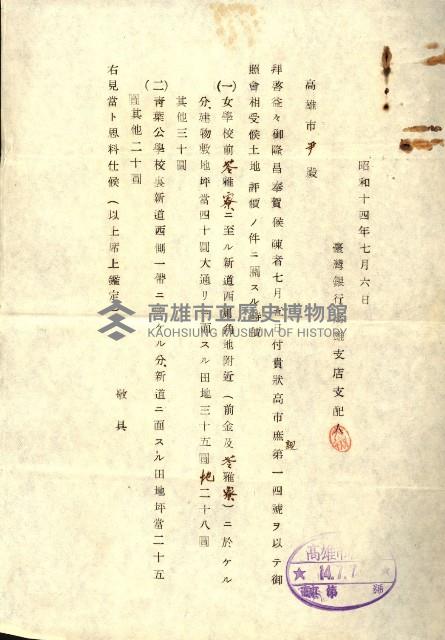 昭和十四年七月六日
臺灣銀行高雄支店支配人
高雄市尹殿
拜啓益々御隆昌奉賀候陳者七月五日付貴狀高市庶第一四號ヲ以テ御
照會相受候土地評價ノ件ニ關スル
(一)女學校前苓雅寮ニ至ル新道西側角地附近(前金及苓雅寮)ニ於ケル
分、建物敷地坪當四十圓大通リニ面スル田地三十五圓他二十八圓
其他三十圓
(二)靑葉公學校裏新道西側一帶ニ於ケル分、新道ニ面スル田地坪當二十五
圓其他二十圓
右見當ト思料仕候(以上席上鑑定)
敬具
高雄市
14.7.7
第 號
高雄市立歷史博物館
KAOHSIUNG MUSEUM OF HISTORY